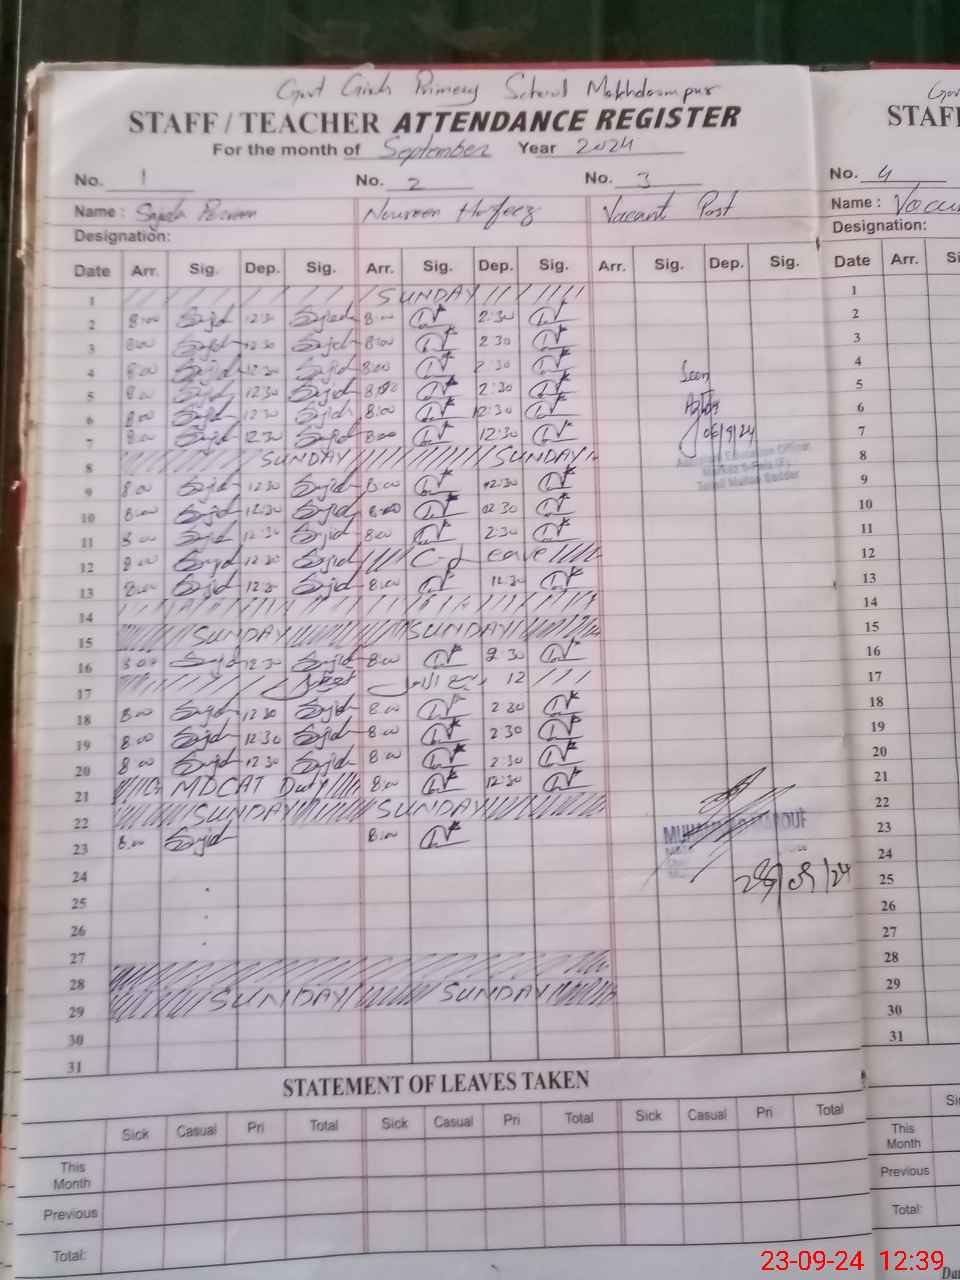 Govt Girls Primary School Makhdoompur
STAFF / TEACHER ATTENDANCE REGISTER
For the month of September Year 2024
No. 1 No. 2 No. 3
Name : Sajida Parveen Noureen Hafeez Vacant Post
Designation:
Date Arr. Sig. Dep. Sig. Arr. Sig. Dep. Sig. Arr. Sig. Dep. Sig.
1 SUNDAY
2 8:00 Sajid 12:30 Sajid 8:00 2:30
3 8:00 Sajid 12:30 Sajid 8:00 2:30
4 8:00 Sajid 12:30 Sajid 8:00 2:30
5 8:00 Sajid 12:30 Sajid 8:00 2:30
6 8:00 Sajid 12:30 Sajid 8:00 12:30
7 8:00 Sajid 12:30 Sajid 8:00 12:30
8 SUNDAY SUNDAY
9 8:00 Sajid 12:30 Sajid 8:00 12:30
10 8:00 Sajid 12:30 Sajid 8:00 02:30
11 8:00 Sajid 12:30 Sajid 8:00 2:30
12 8:00 Sajid 12:30 Sajid C-Leave
13 8:00 Sajid 12:30 Sajid 8:00 12:30
14
15 SUNDAY SUNDAY
16 8:00 Sajid 12:30 Sajid 8:00 2:30
17 12
18 8:00 Sajid 12:30 Sajid 8:00 2:30
19 8:00 Sajid 12:30 Sajid 8:00 2:30
20 8:00 Sajid 12:30 Sajid 8:00 2:30
21 MDCAT Duty 8:00 12:30
22 SUNDAY SUNDAY
23 8:00 Sajid 8:00
24
25
26
27
28
29 SUNDAY SUNDAY
30
31
Seen
06/9/24
/09/24
STATEMENT OF LEAVES TAKEN
Sick Casual Pri Total Sick Casual Pri Total Sick Casual Pri Total
This
Month
Previous
Total:
STAFF
No. 4
Name :
Designation:
Date Arr.
1
2
3
4
5
6
7
8
9
10
11
12
13
14
15
16
17
18
19
20
21
22
23
24
25
26
27
28
29
30
31
This
Month
Previous
Total:
23-09-24 12:39